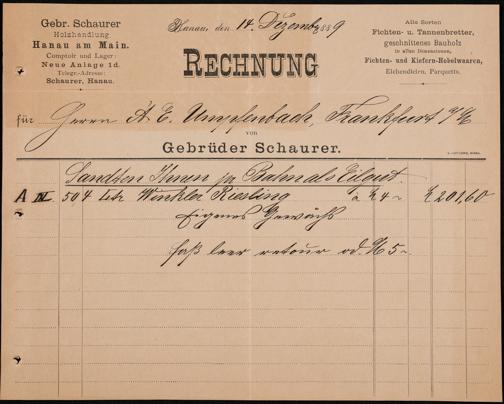 Gebr. Schaurer
Holzhandlung
Hanau am Main.
Comptoir und Lager:
Neue Anlage 1d.
Telegr.-Adresse:
Schaurer, Hanau.
Hanau, den 14. Dezember 1889
RECHNUNG
Alle Sorten
Fichten- u. Tannenbretter,
geschnittenes Bauholz
in allen Dimensionen,
Fichten- und Kiefern-Hobelwaaren,
Eichendielen, Parquets.
für Herrn A. E. Umpfenbach, Frankfurt a/M
von
Gebrüder Schaurer.
Sandten Ihnen pr Bahn als Eilgut.
A IV 504 Ltr Winkler Riesling a M 4 ~ M 201,60
Eigenes Gewächs
Faß leer retour od. M 5 ~